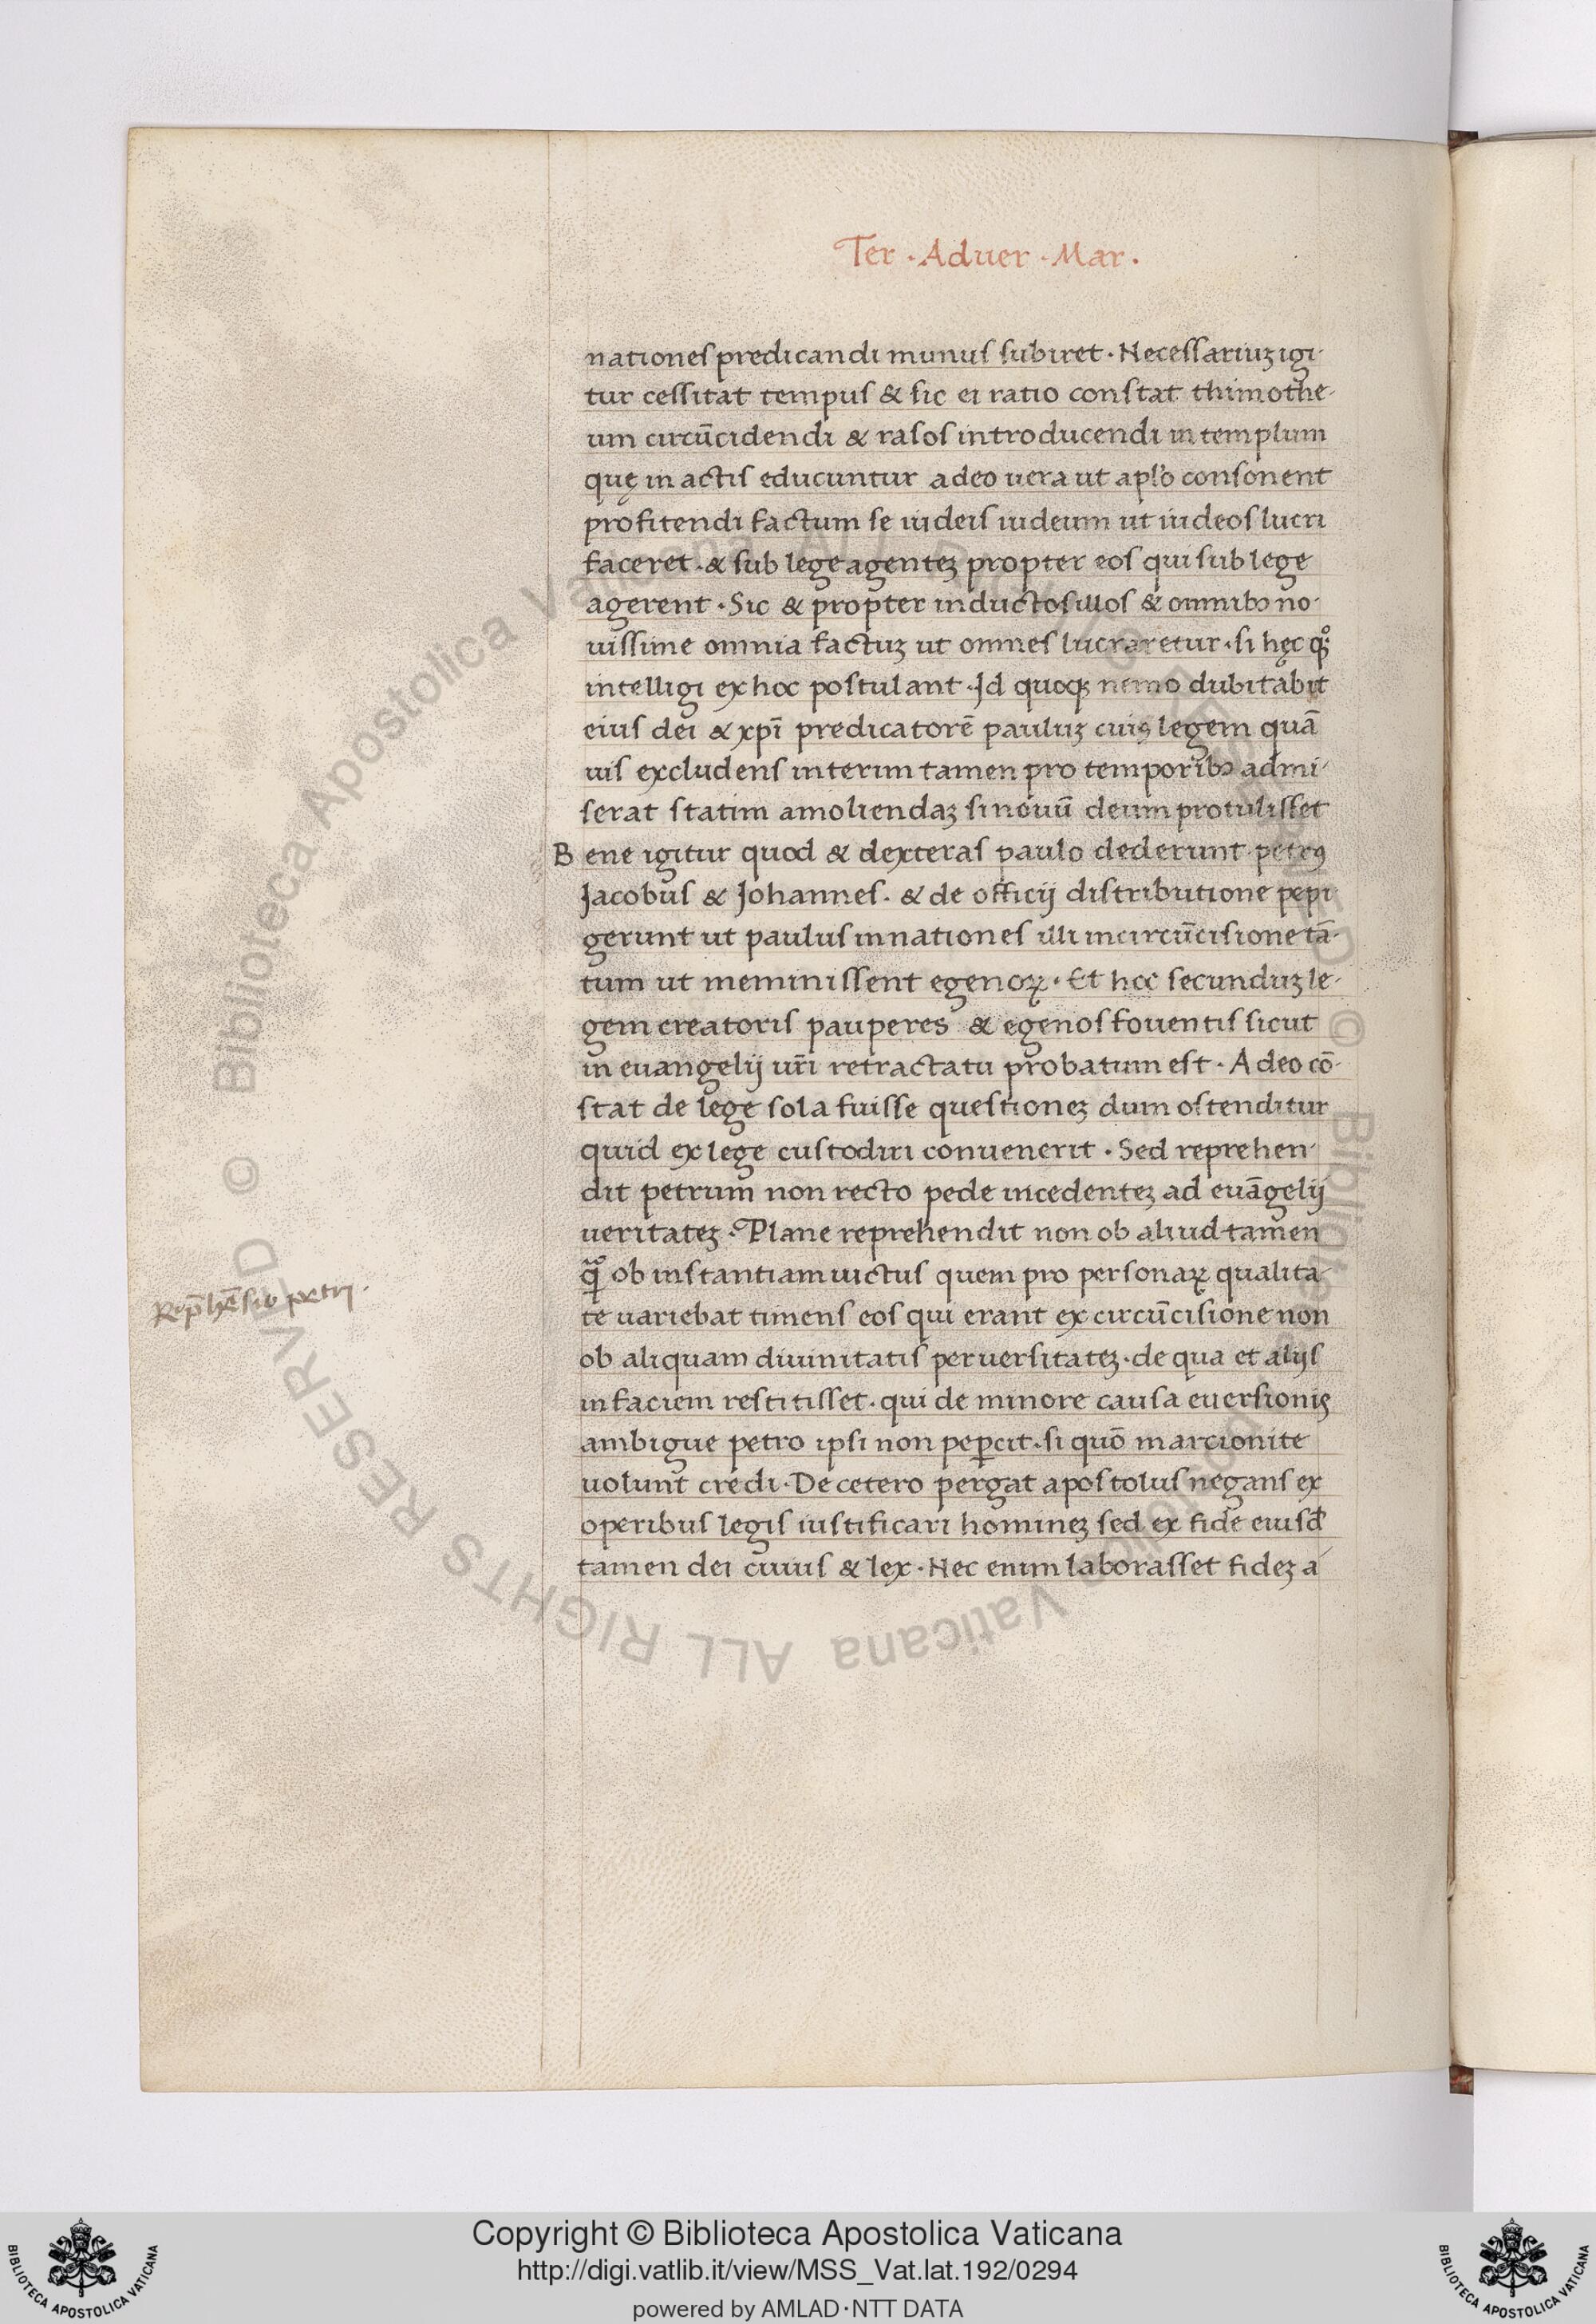 Ter · Aduer · Mar ·
nationes predicandi munus subiret · Necessariuꝫ igi-
tur cessitat tempus & sic ei ratio constat thimothe-
um circūcidendi & rasos introducendi in templum
quę in actis educuntur adeo uera ut apl'o consonent
profitendi factum se iudeis iudeum ut iudeos lucri
faceret · & sub lege agenteꝫ propter eos qui sub lege
agerent · Sic & propter inductos illos & omnibꝫ no-
uissime omnia factuꝫ ut omnes lucraretur · si hęc qͦꝫ
intelligi ex hoc postulant · Id quoqꝫ nemo dubitabit
eius dei & xp̄i predicatorē pauluꝫ cuiꝰ legem quā
uis excludens interim tamen pro temporibꝫ admi-
serat statim amoliendaꝫ si nouū deum protulisset
Bene igitur quod & dexteras paulo dederunt petrꝰ
Jacobus & Johannes · & de officij distributione pepi
gerunt ut paulus in nationes illi in circūcisione tā-
tum ut meminissent egenoꝝ · Et hoc secunduꝫ le-
gem creatoris pauperes & egenos fouentis sicut
in euangelij ur̄i retractatu probatum est · Adeo cō-
stat de lege sola fuisse questioneꝫ dum ostenditur
quid ex lege custodiri conuenerit · Sed reprehen-
dit petrum non recto pede incedenteꝫ ad euāgelij
ueritateꝫ · Plane reprehendit non ob aliud tamen
qᷓ ob instantiam uictus quem pro personaꝝ qualita-
te uariebat timens eos qui erant ex circūcisione non
Rep̄hēsio petri ·
ob aliquam diuinitatis peruersitateꝫ · de qua et alijs
in faciem restitisset · qui de minore causa euersionis
ambigue petro ipsi non peꝑcit · si quō marcionite
uolunt credi · De cetero pergat apostolus negans ex
operibus legis iustificari homineꝫ sed ex fide eiusd̄
tamen dei cuius & lex · Nec enim laborasset fideꝫ a
Copyright © Biblioteca Apostolica Vaticana
http://digi.vatlib.it/view/MSS_Vat.lat.192/0294
powered by AMLAD·NTT DATA